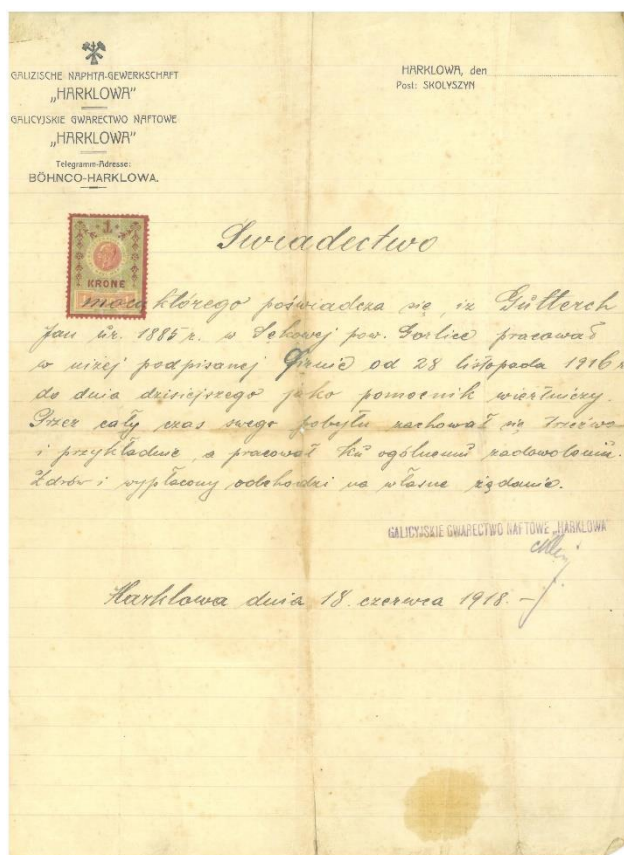 GALIZISCHE NAPHTA-GEWERKSCHAFT
„HARKLOWA”
GALICYJSKIE GWARECTWO NAFTOWE
„HARKLOWA”
Telegramm-Adresse:
BÖHNCO-HARKLOWA.
HARKLOWA, den
Post: SKOLYSZYN
1
KRONE
Świadectwo
mocą którego poświadcza się, iż Gütterch
Jan ur. 1885 r. w Sękowej pow. Gorlice pracował
w niżej podpisanej firmie od 28 listopada 1916 r
do dnia dzisiejszego jako pomocnik wiertniczy.
Przez cały czas swego pobytu zachował się trzeźwo
i przykładnie, a pracował ku ogólnemu zadowoleniu.
Zdrów i wypłacony odchodzi na własne żądanie.
GALICYJSKIE GWARECTWO NAFTOWE „HARKLOWA”
Harklowa dnia 18. czerwca 1918. –